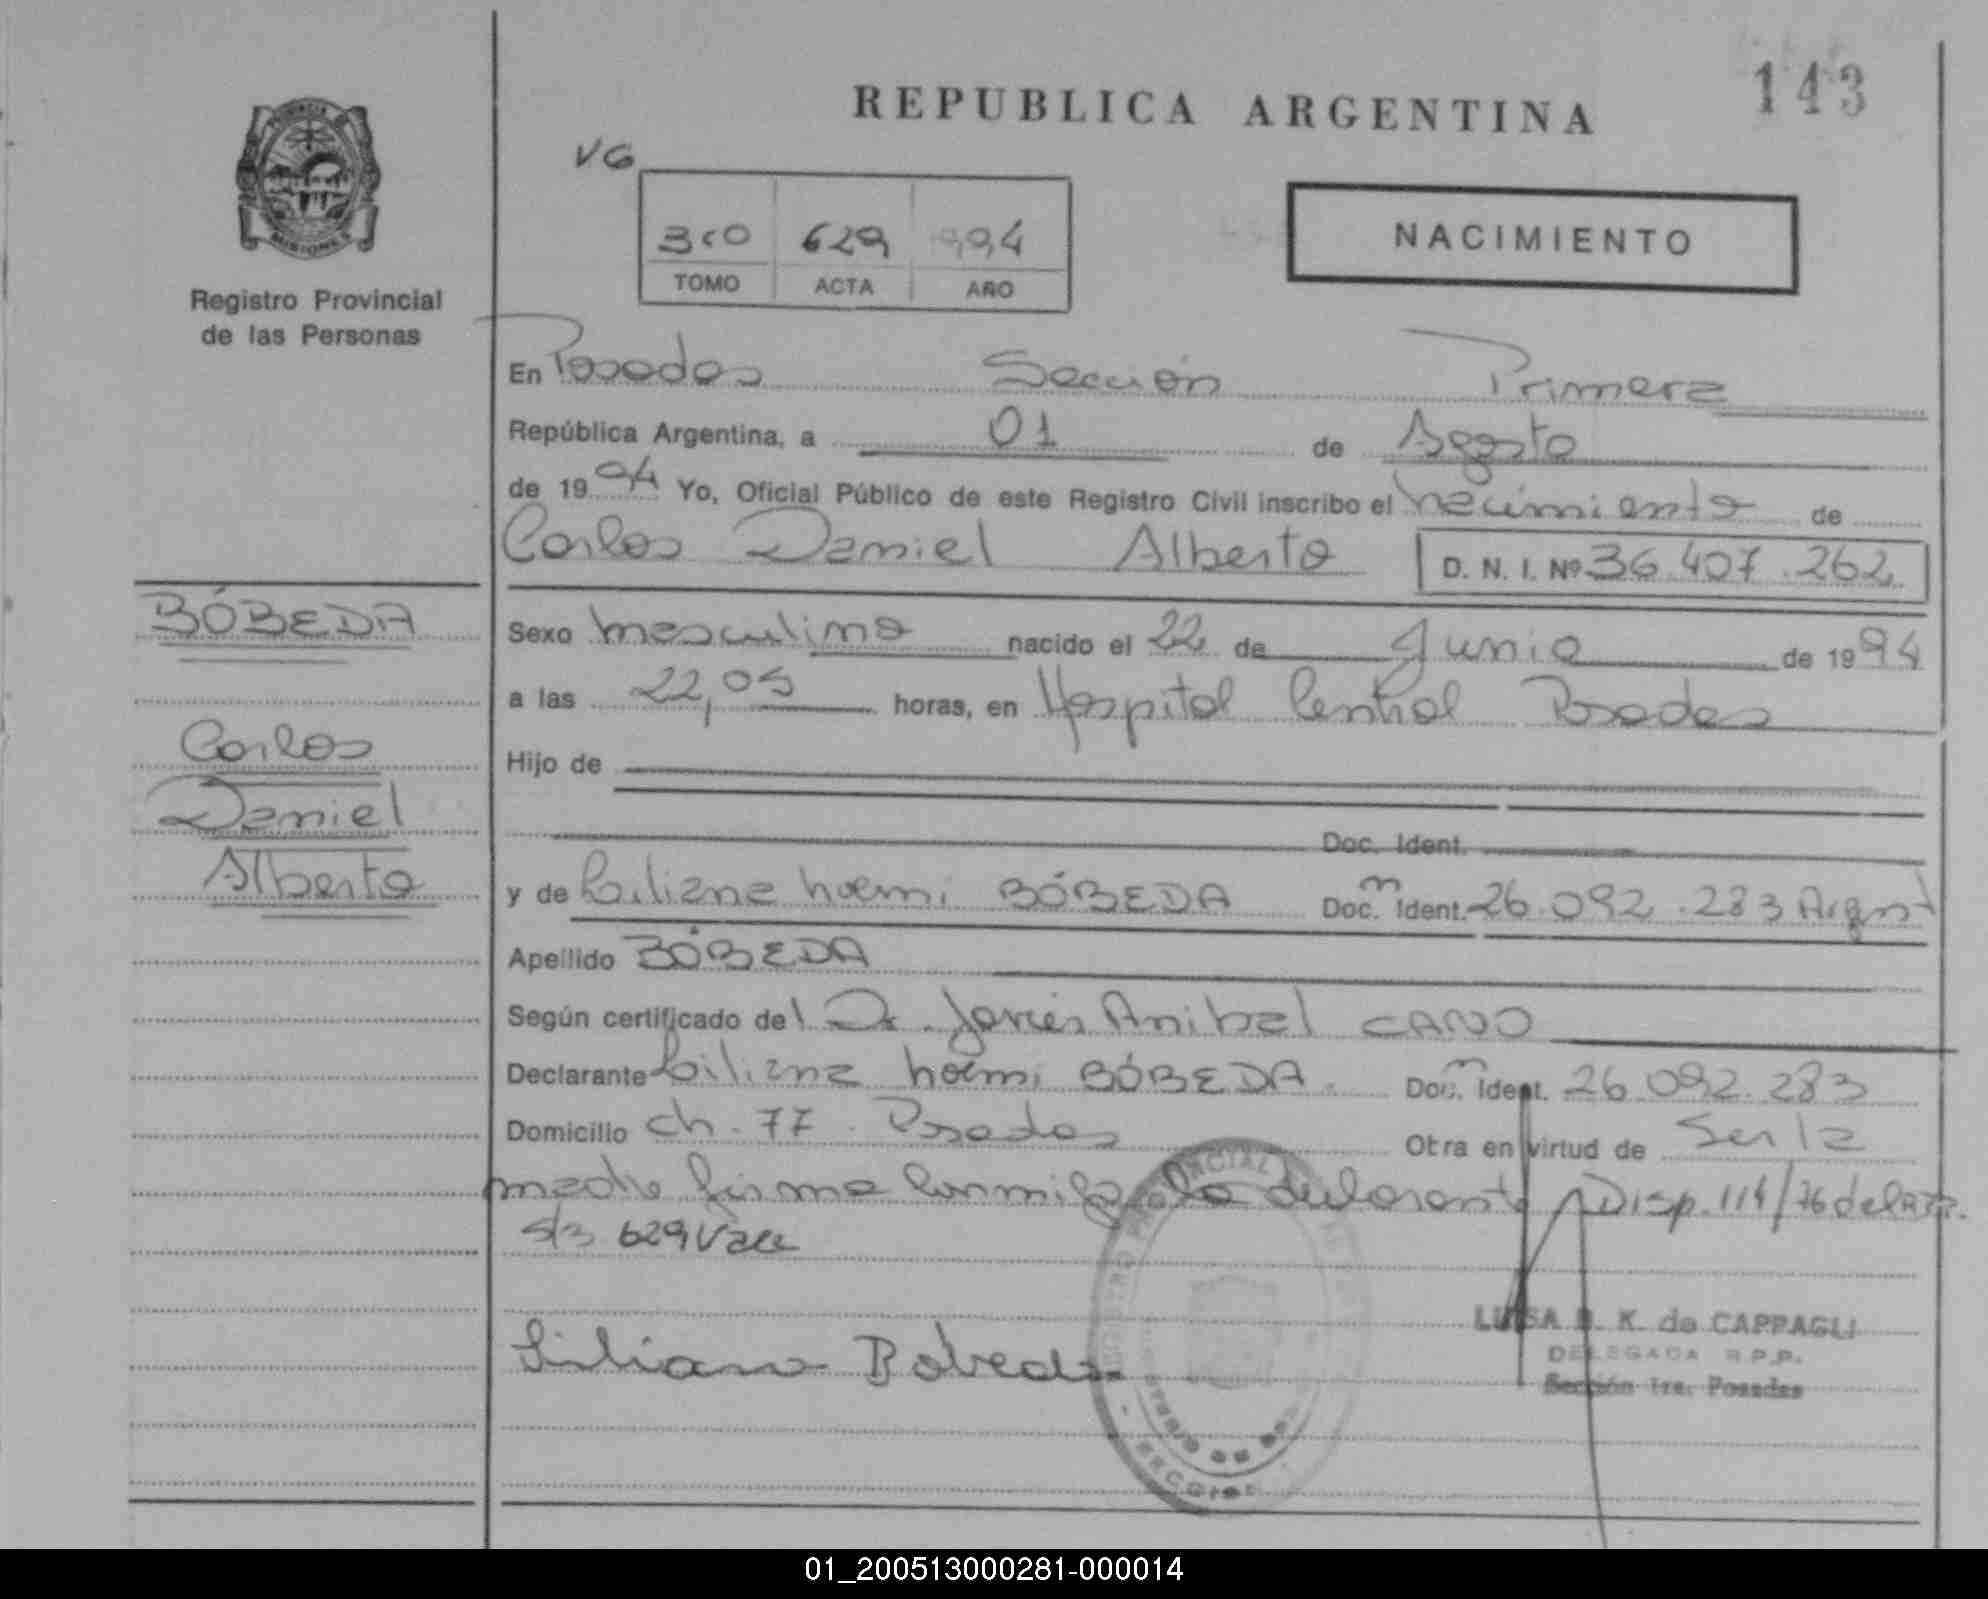 143
REPUBLICA ARGENTINA
PROVINCIA
MISIONES
Registro Provincial
de las Personas
VG
629 994
TOMO ACTA AÑO
NACIMIENTO
En Posadas Sección Primera
República Argentina, a 01 de Agosto
de 1994 Yo, Oficial Público de este Registro Civil inscribo el nacimiento de
Carlos Daniel Alberto D. N. I. Nº 36.407.262
BÓBEDA
Carlos
Daniel
Alberto
Sexo masculino nacido el 22 de Junio de 1994
a las 22,05 horas, en Hospital Central Posadas
Hijo de
Doc. Ident.
y de Liliana Noemi BÓBEDA Doc. Ident. 26.092.283 Argent
Apellido BÓBEDA
Según certificado del Dr. Javier Anibal CANO
Declarante Liliana Noemi BÓBEDA. Doc. Ident. 26.092.283
Domicilio ch. 77. Posadas Otra en virtud de Ser la
madre firma conmigo la declarante Disp. 114/76 del
s/r 629 Vale
Liliana Bobeda
LUISA B. K. de CAPPAGLI
DELEGADA R.P.P.
Sección 1ra. Posadas
01_200513000281-000014